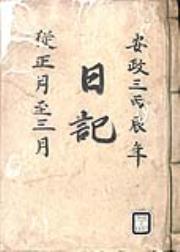 安政三丙辰年
日記
從正月至三月